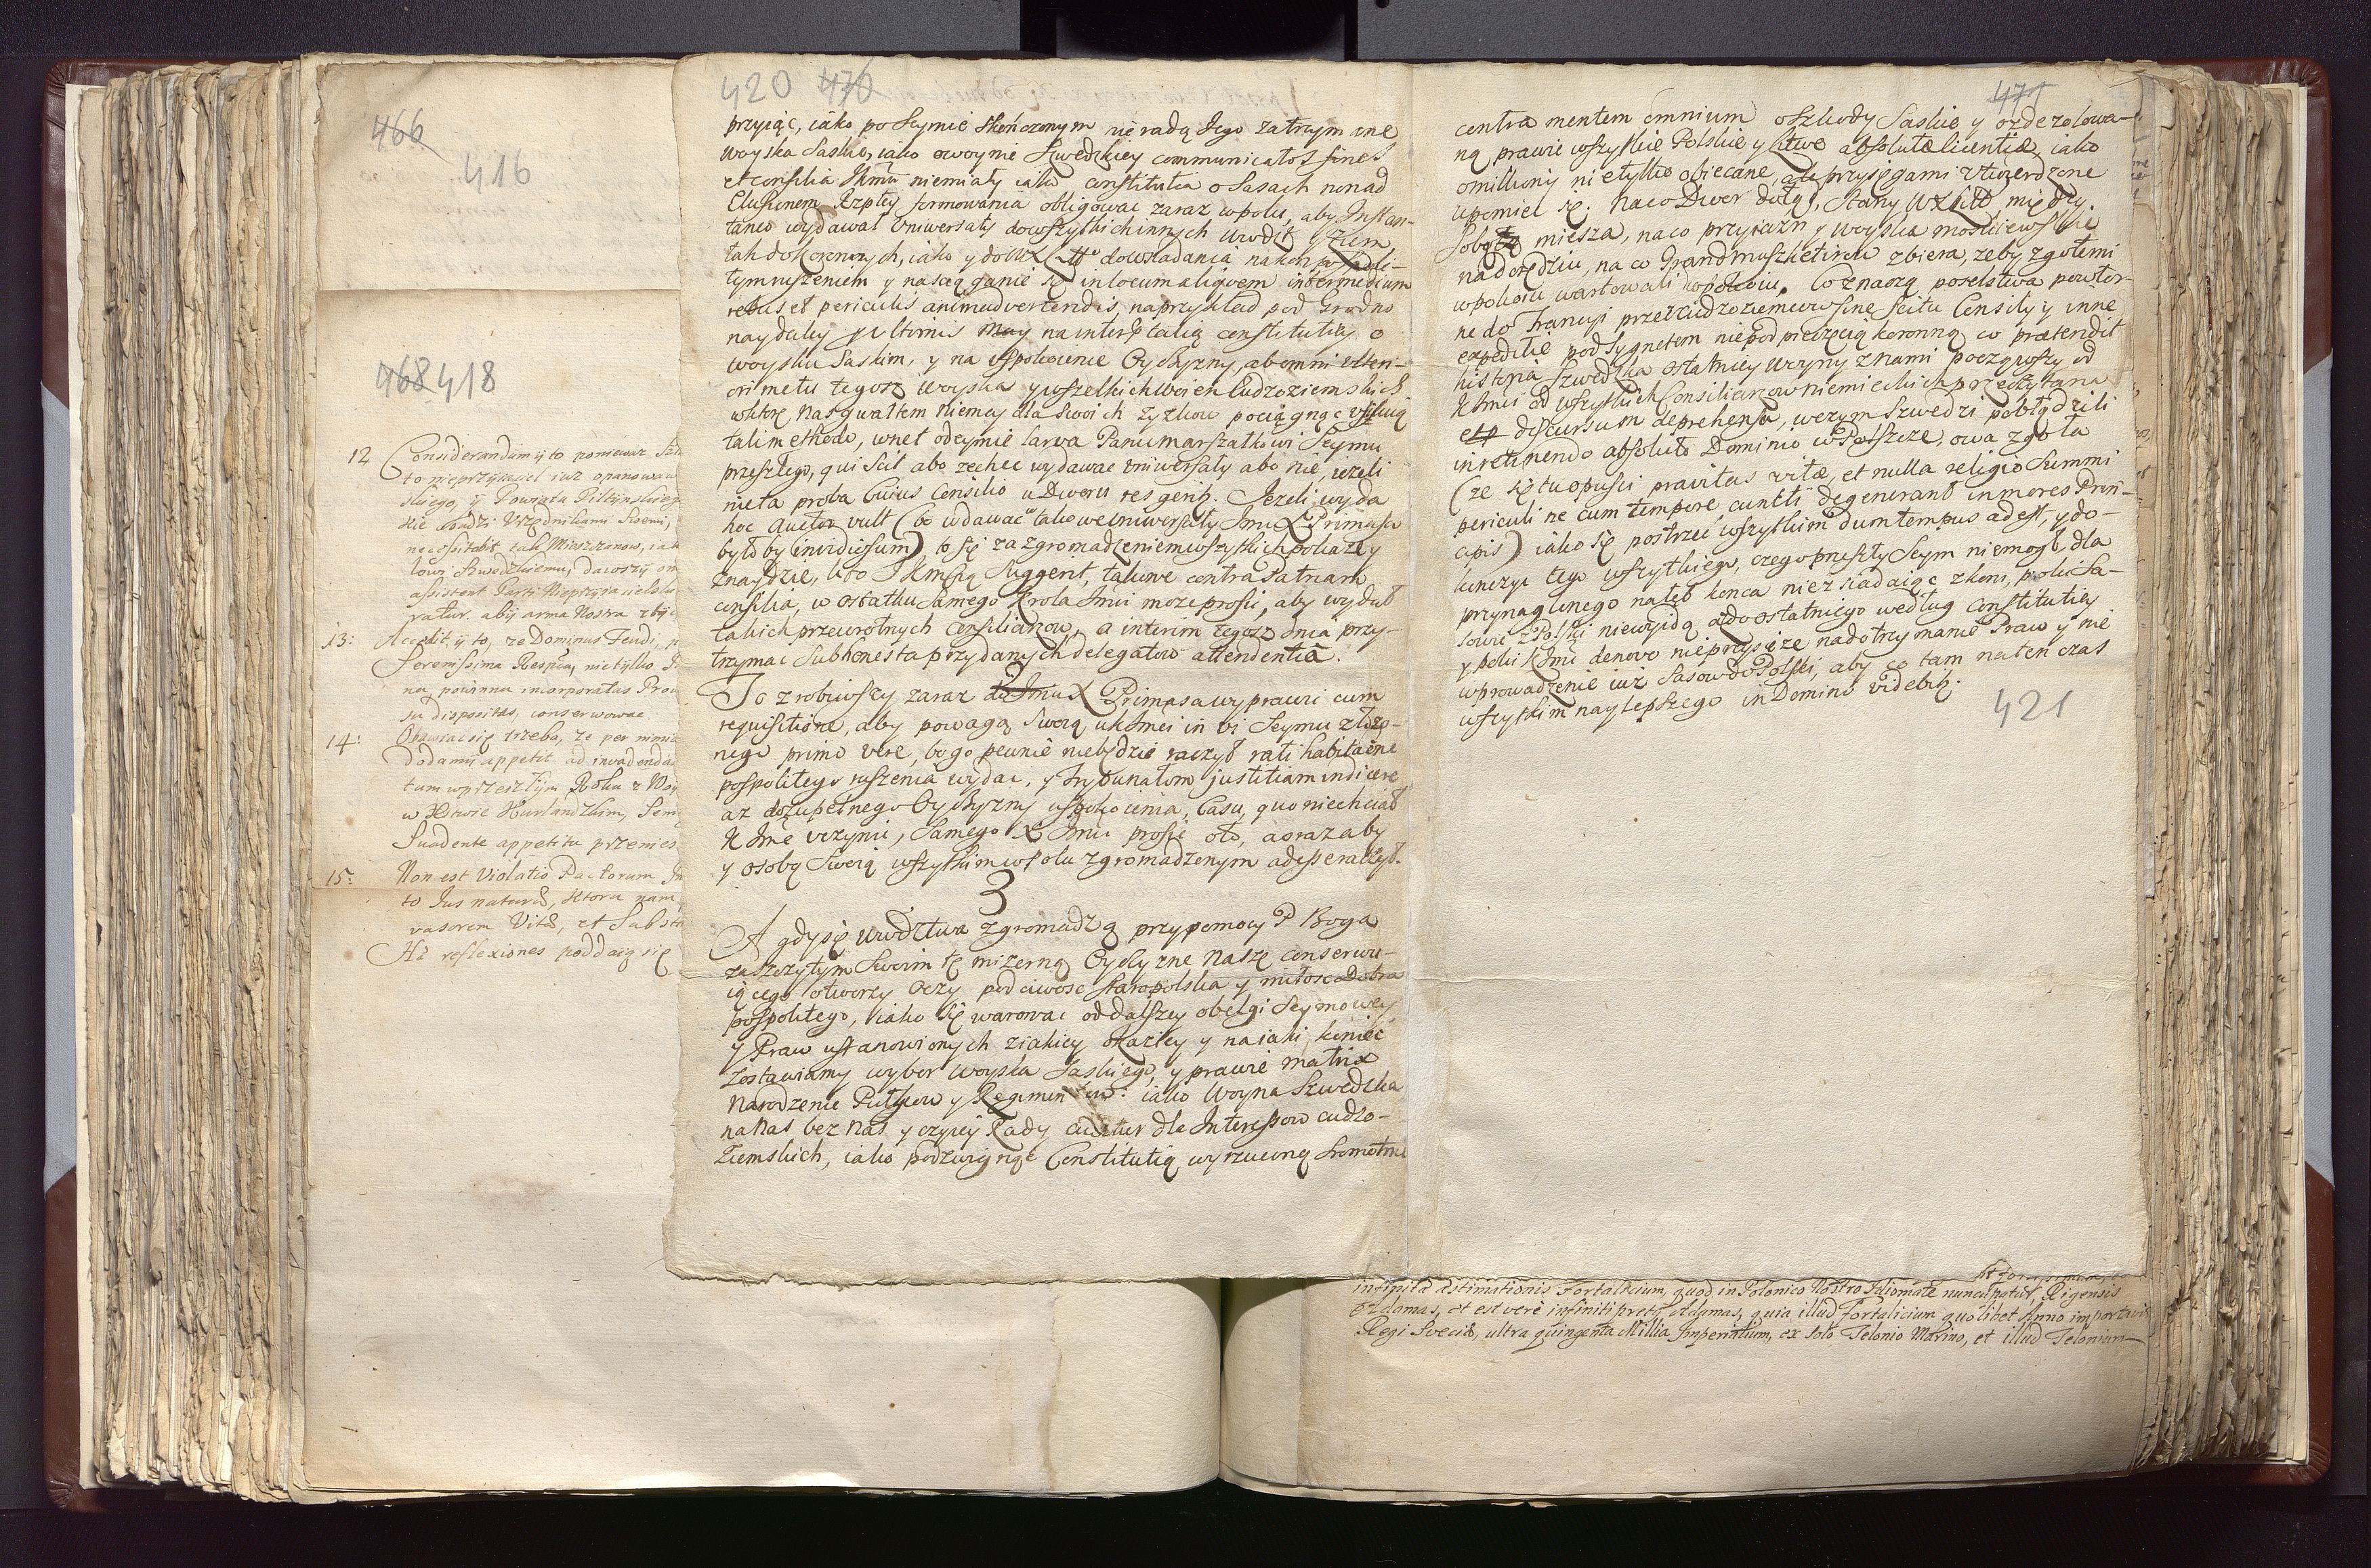 466
416
468 418
12 Considerandum ÿ to poniewaz
to nieprzyiaciel iuz opanowaw
skiego, ÿ Powiatu Piltynskieg
Urzędnikami Swemi,
necessitabit tak Mieszczanow, iak
lowi Szwedzkiemu, dawszÿ
assistent Parti Nieprzÿiacielski
ratur. abÿ arma Nostra
13: Accedit ÿ to, ze Dominus Feudi,
Serenissima Respca, nie tylko
na, powinna incorporatas Prou
su dispositas, conserwowac.
14: Obawiac się trzeba, ze per nimia
dodamÿ appetit ad invadenda
tum w przeszłÿm Roku z
w Xstwie Kurlandzkim, Semi
Suadente appetitu przenies
15: Non est Violatio Pactorum
to Jus naturæ, ktora nam
vasorem Vitæ, et Substa
Hæ reflexiones poddaią się
420 470
przyiąc, iako po Seymie skończonym nie radą Jego zatrzymane
Woyska Saskie, iako o woynie Szwedzkiey communicatos fines
et consilia niemiały iako constitutia o Sasach non ad
Elusionem Rzptey formowania obligowac zaraz w polu, aby Instan-
taneo wydawał Uniwersały do wszytkich innych Uwodztw y Ziem,
tak do Koronnych, iako y do WXLitt do wsiadania na kon pospoli-
tym ruszeniem y na sciąganie się in locum aliquem intermedium
rebus et periculis animadvertendis, naprzykład pod Grodno
naydaley Ultimis May na interptatią constitutiey o
woysku Saskim, y na uspokoienie Oyczyzny, ab omni ulteri-
ori metu tegosz woyska y wszelkich woien Cudzoziemskich
w ktore nas gwałtem Niemcy dla swoich zyzkow pociągnąc usiłuią
tali methodo, wnet odeymie larwa Panu Marszałkowi Seymu
przeszłego, qui scit abo zechce wydawac Uniwersały abo nie, iezeli
nie ta proba Cuius Consilio u Dworu res gerit. Jezeli wyda
hoc Auctor vult (bo wdawac takowe Uniwersały Jmci X Primasa
było by invidiosum), to się za zgromadzeniem wszytkich pokaze y
znaydzie, kto I KMscią Suggerit, takowe contra Patriam
consilia, w ostatku Samego Krola Jmci moze prosic, aby wydał
takich przewrotnych Consiliarzow, a interim tegosz dnia przy-
trzymac sub honesta przydanych delegatow attendentia.
To zrobiwszy zaraz do Jmci X Primasa wyprawi cum
requisitione, aby powagą Swoią u K Jmci in vi Seymu złozo-
nego primo vere, bo go pewnie niebędzie raczył rati habitaone
pospolitego ruszenia wydac, y Trybunałom justitiam indicere
az do zupełnego Oyczyzny uspokoienia, Casu, quo niechciał
K Jmc uczynic, Samego X Jmci prosic oto, a oraz aby
y osobą Swoią wszytkim w polu zgromadzonym adesse raczył.
3
A gdy się Uwodztwa zgromadzą przy pomocy P Boga
zaszczytym Swoim tę mizerną Oyczyzne Naszę conserwu-
iącego otworzy Oczy podciwosc staropolska y miłosc Dobra
pospolitego, iako się warowac od dalszey obelgi Seymowey
y Praw ustanowionych z iakiey okaziey y na iaki koniec
zostawiamy wybor woyska Saskiego, y prawie matrix
Narodzenie Pułkow y Regimentow: iako Woyna Szwedzka
na Nas bez Nas y czyiey Rady cuditur dla Interessow cudzo-
Ziemskich, iako podzwignąc Constitutią wyrzuconą sromotnie
471
contra mentem omnium o szkody Saskie y ozdezolowa-
ną prawie wszytkie Polskie y Litwe absolutæ licentiæ, iako
o milliony nie tylko obiecane, ale przysięgami utwierdzone
upomiec się. Na co Dwor dołgi, Stany WXLitt między
Sobą miesza, na co przyiazn y woyska moskiewskie
na dorędziu, na co Grandmuszketirow zbiera, zeby z gołemi
w pokoiu wartowali Co znaczą poselstwa powtor-
ne do Francyi przez cudzoziemcow sine scitu Consily y inne
expeditie pod Sygnetem nie pod pieczęcią koronną co prætendit
historia Szwedzka ostatniey woyny z nami począwszy od
K Jmci od wszytkich Consiliarzow niemieckich przeczytana
discursum deprehensa, w czym Szwedzi pobłądzili
in retinendo absoluto Dominio w Polszcze, owa zgoła
(ze się tu opusci pravitas vitæ, et nulla religio Summi
periculi ne cum tempore, cuncti degenerant in mores Prin-
cipis) iako się postrzec wszytkim dum tempus adest, y do-
konczyc tego wszytkiego, czego przeszły Seym niemogł dla
przynaglonego na łeb konca nie zsiadaiąc z koni, poki Sa-
sowie z Polski niewyidą ado ostatniego według Constitutiey
y poki K Jmc denovo nieprzysięze na dotrzymanie Praw y nie
wprowadzenie iuz Sasow do Polski, aby co tam na ten czas
wszytkim naylepszego in Domino videbitr.
421
infinitæ æstimationis Fortalitium, quod in Polonico Nostro Idiomate nuncupatur, Rigensis
Adamas, et est verè infiniti pretÿ Adamas, quia illud Fortalicium quolibet Anno importavit
Regi Sveciæ, ultra quingenta Millia Imperialium, ex solo Telonio Marino, et illud Telonium